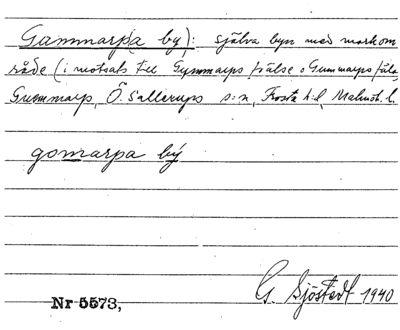 Gammarpa by): själva byn med markom
råde (i motsats till Gummarps frälse o Gummarps
Gummarp, Ö. Sallerups s:n, Frosta h:d, Malmöh. l.
gomarpa bý
G. Sjöstedt 1940
Nr 5573,